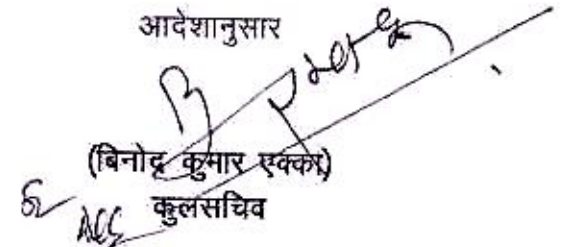 आदेशानुसार
(बिनोद कुमार एक्का)
कुलसचिव